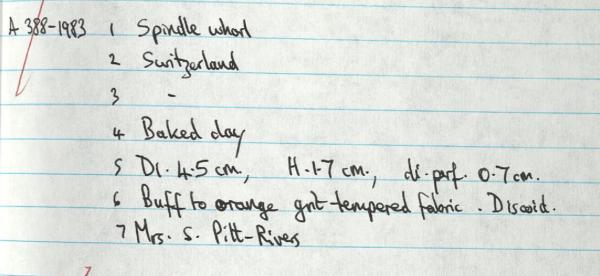 A 388-1983 1 Spindle whorl
2 Switzerland
3 -
4 Baked clay
5 Di. 4.5 cm, H. 1.7 cm., di. perf. 0.7 cm.
6 Buff to orange grit-tempered fabric. Discoid.
7 Mrs. S. Pitt-Rivers
7